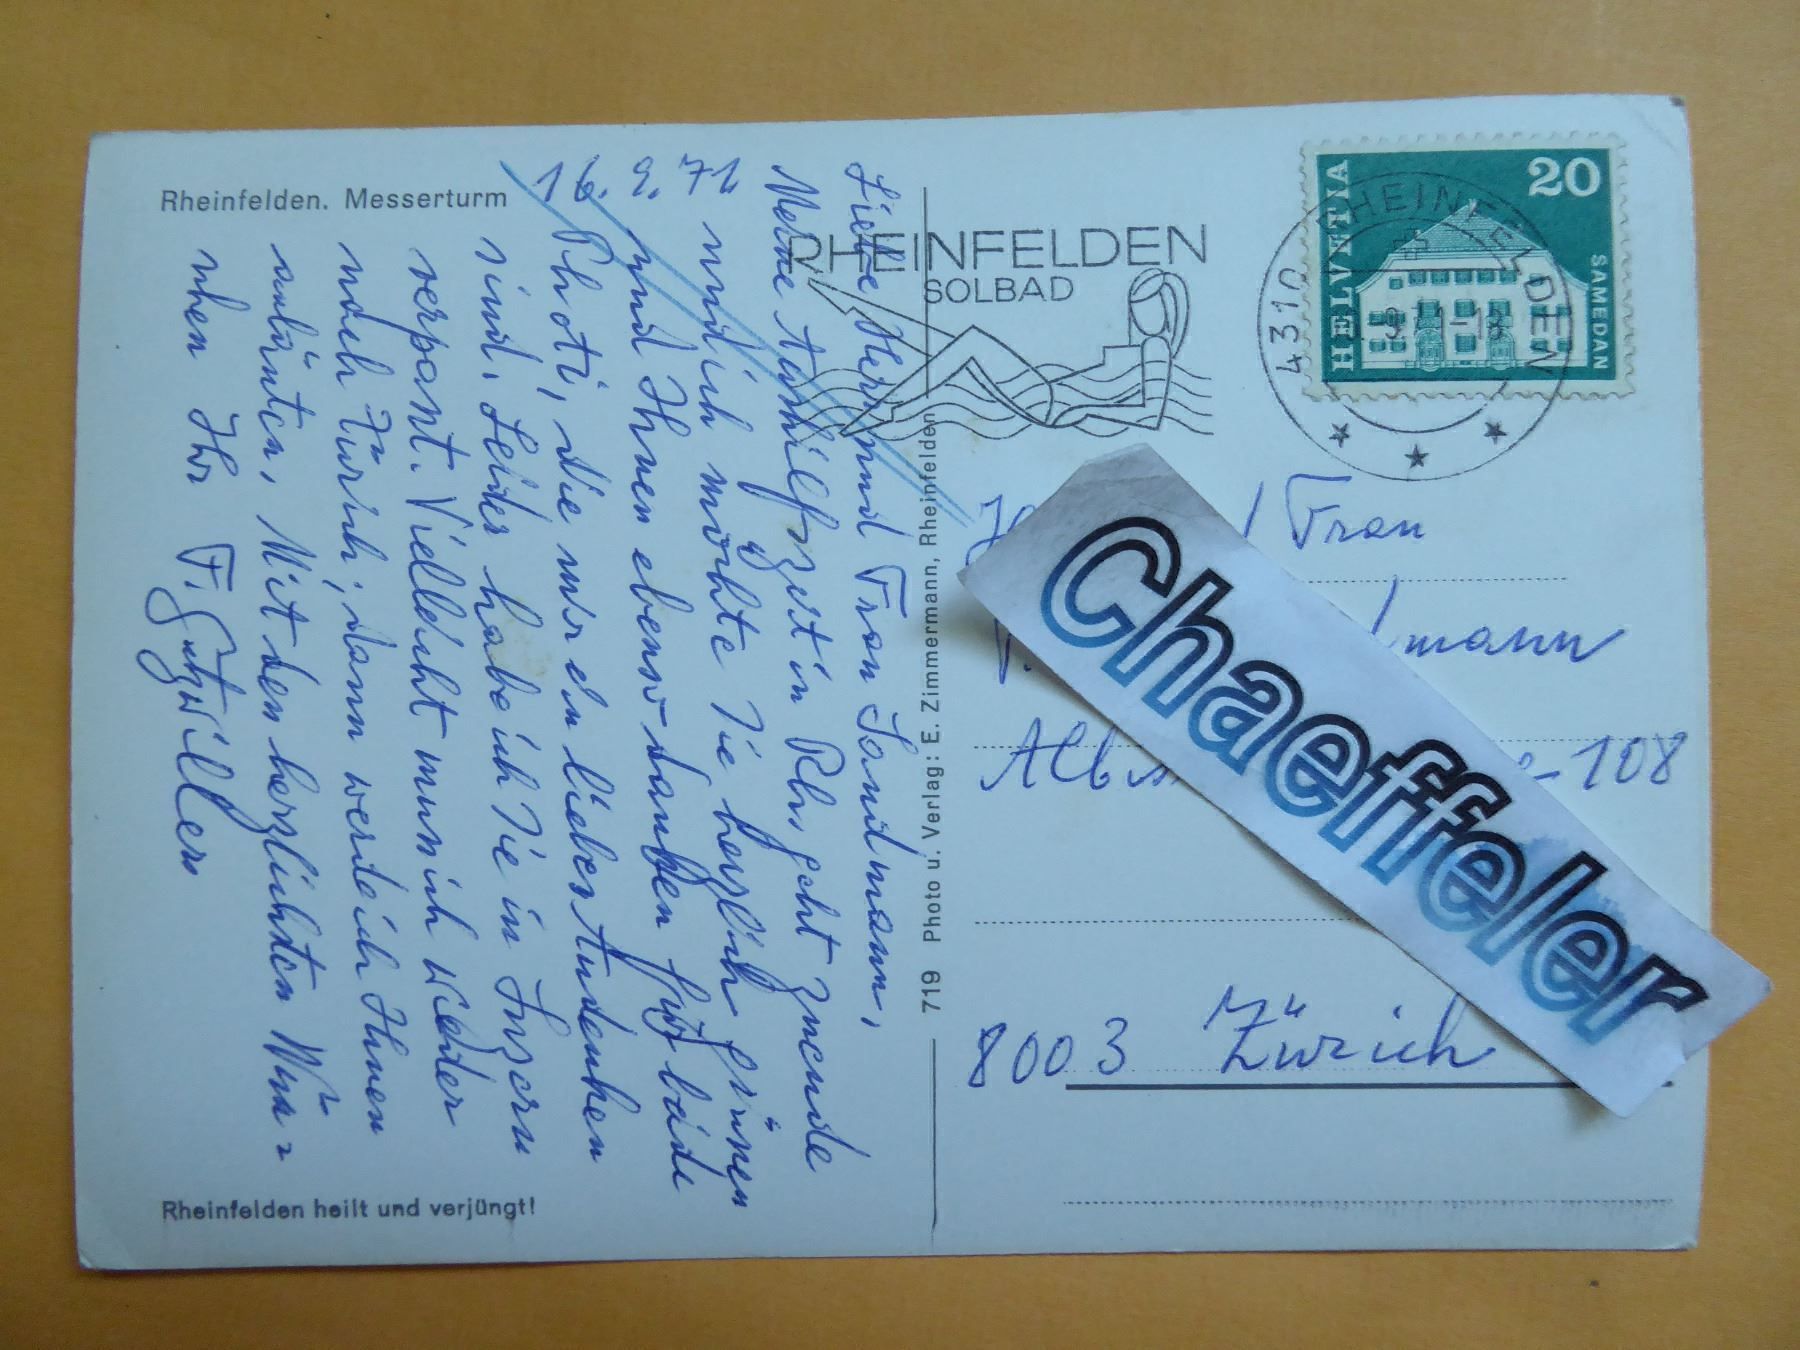 Rheinfelden. Messerturm
16. 9. 71
Liebe Herr und Frau Sandmann,
Meine Aushilfszeit in Rh. geht zuende
und ich möchte Sie herzlich grüssen
und Ihnen ebenso danken für beide
Photi, die mir ein liebes Andenken
sind. Leider habe ich Sie in Luzern
verpasst. Vielleicht muss ich wieder
nach Zürich; dann werde ich Ihnen
anläuten. Mit den herzlichsten Wün-
schen Ihr F. Gutzwiller
Rheinfelden heilt und verjüngt!
719 Photo u. Verlag: E. Zimmermann, Rheinfelden
RHEINFELDEN
SOLBAD
4310 RHEINFELDEN
HELVETIA
20
SAMEDAN
Frau
mann
108
8003 Zürich
Chaeffeler